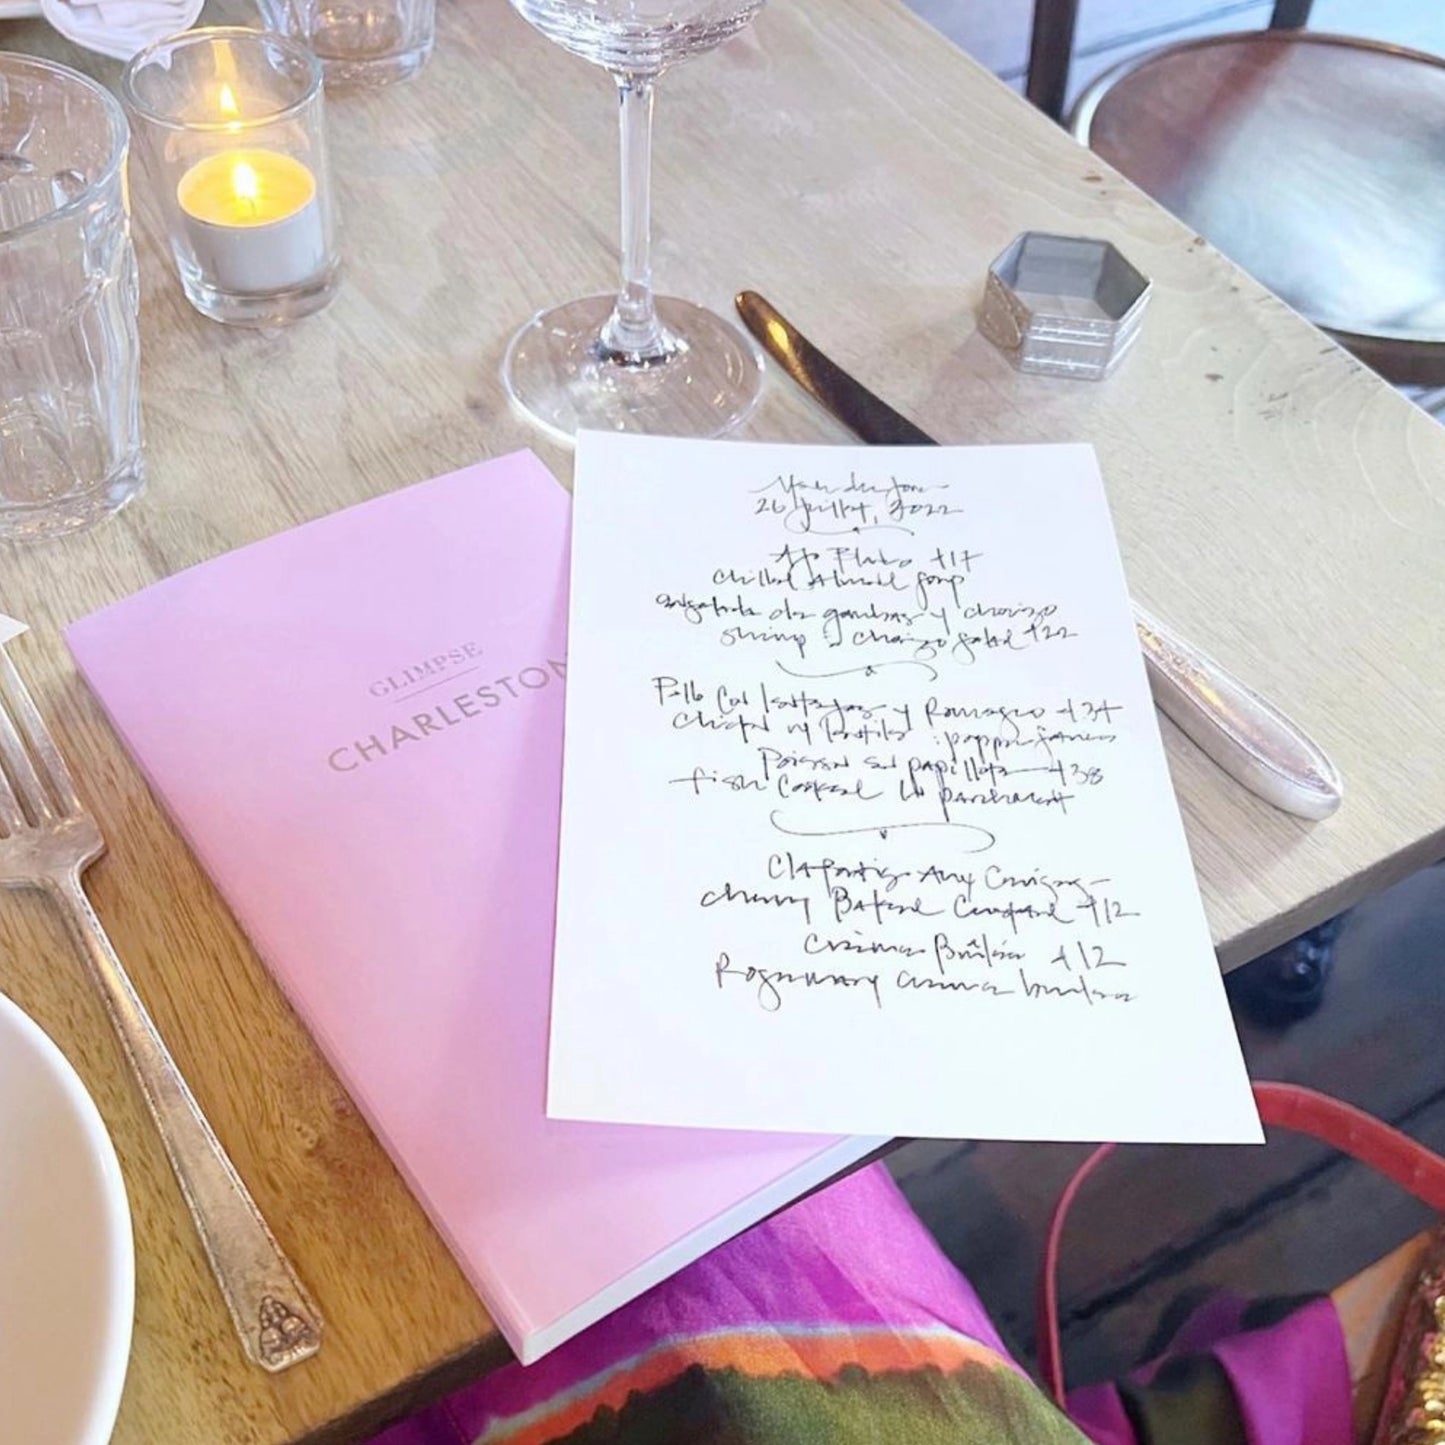 GLIMPSE
CHARLESTON
26 Juillet, 2022
Ajo Blanco +17
Chilled Almond Soup
de gambas y chorizo
Shrimp & Chorizo Salad +22
Pollo Con y Romesco +34
Chicken w/
Poisson en papillote +38
fish Cooked in parchment
Clafoutis Aux Cerises
Cherry Baked Custard +12
Crème Brûlée +12
Rosemary creme brulee